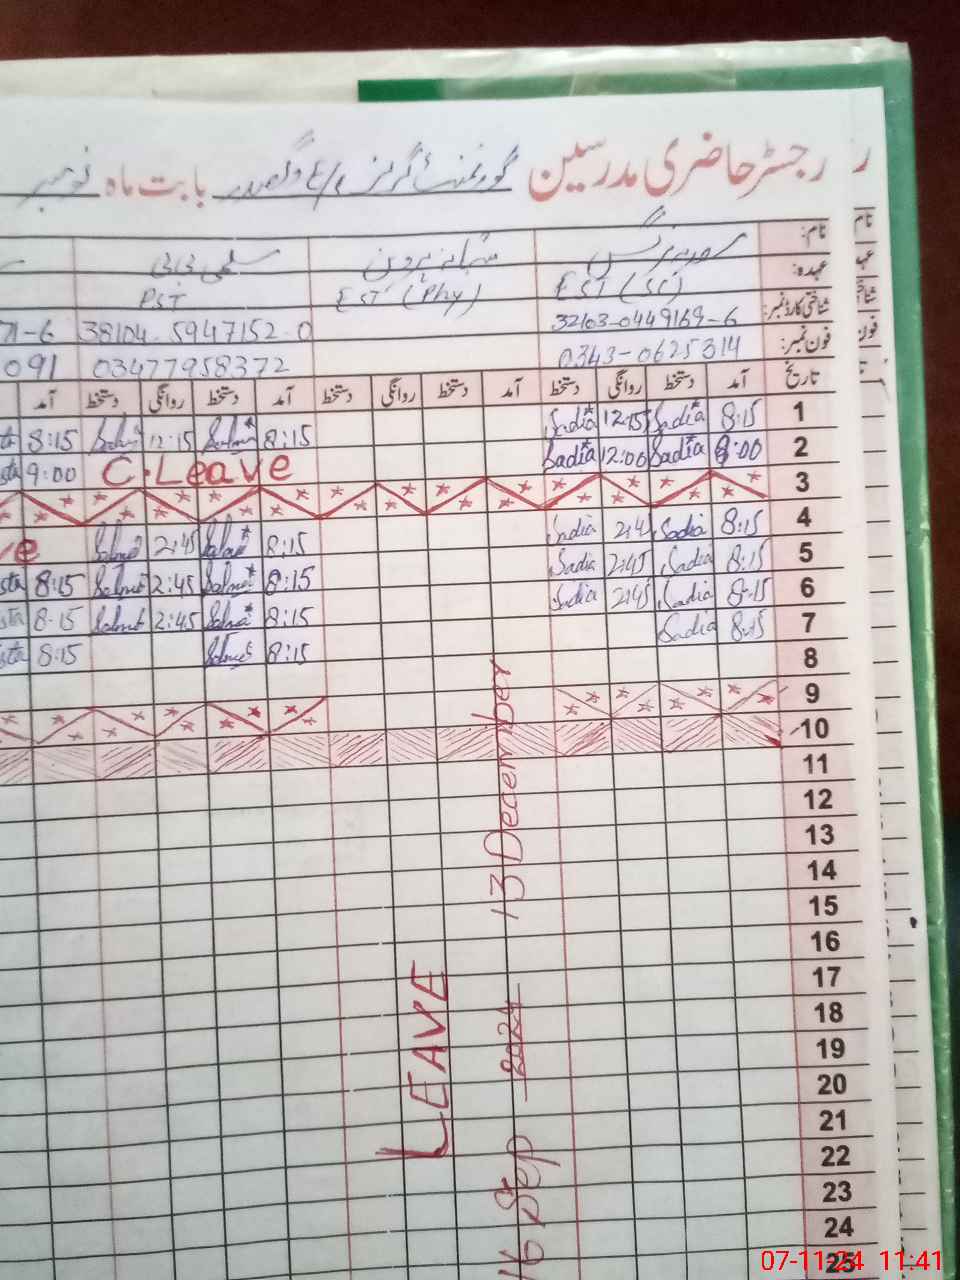 رجسٹر حاضری مدرسین گورنمنٹ گرلز بابت ماہ نومبر
نام:
شبانہ پروین سلمیٰ بی بی
عہدہ: EST (SC) EST (Phy) PST
شناختی کارڈ نمبر: 32103-0449169-6 38104-5947152-0 71-6
فون نمبر: 0343-0625314 03477958372 091
تاریخ آمد دستخط روانگی دستخط آمد دستخط روانگی دستخط آمد دستخط روانگی دستخط آمد
1 8:15 Sadia 12:15 Sadia 8:15 Salma 12:15 Salma 8:15
2 9:00 Sadia 12:00 Sadia C.Leave 9:00
3
4 8:15 Sadia 2:45 Sadia 8:15 Salma 2:45 Salma ve
5 8:15 Sadia 2:45 Sadia 8:15 Salma 2:45 Salma 8:15
6 8:15 Sadia 2:45 Sadia 8:15 Salma 2:45 Salma 8:15
7 8:15 Sadia 8:15 Salma 8:15
8
9
10
11
12
13
14
15
16
17
18
19
20
21
22
23
24
25
LEAVE
16 Sep 2024 13 December
07-11-24 11:41